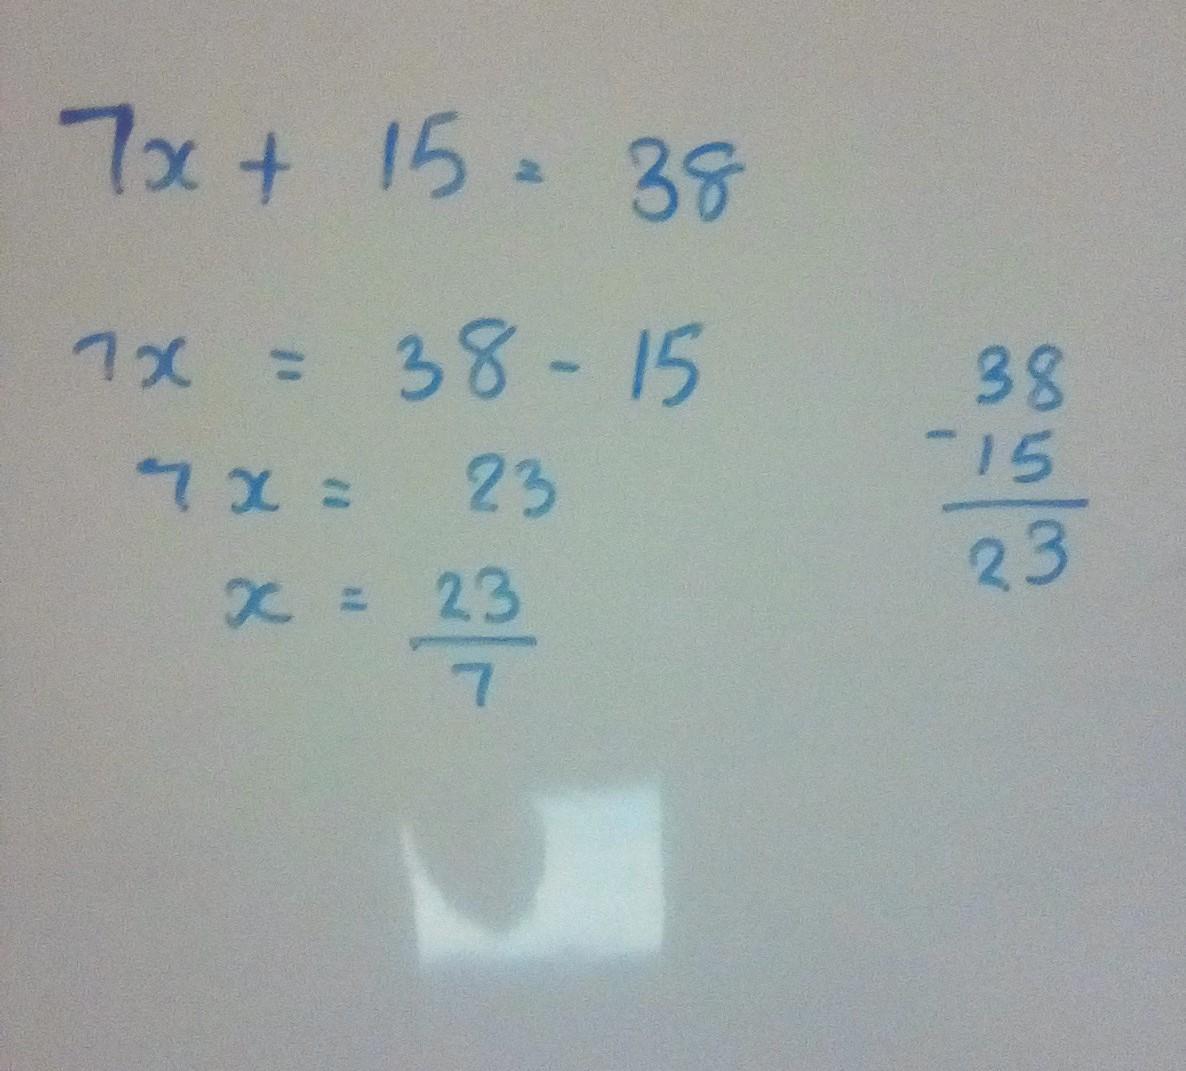 7x + 15 = 38
7x = 38 - 15
7x = 23
x = 23
7
38
- 15
23